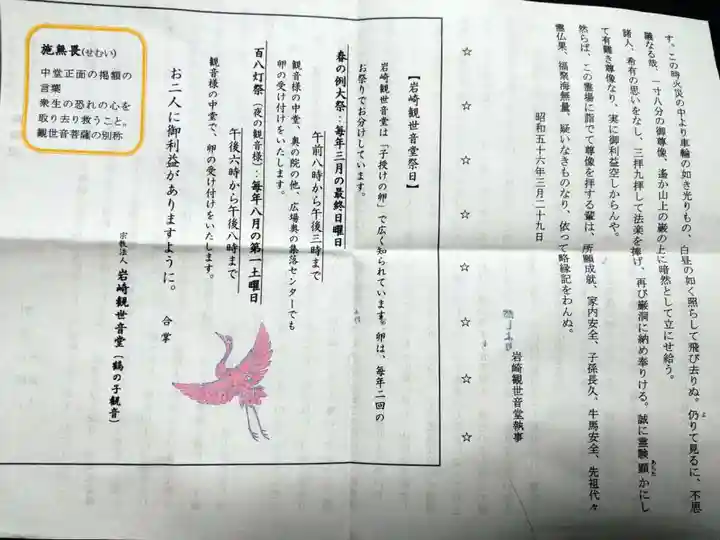 す。この時火災の中より車輪の如き光りもの、白昼の如く照らして飛び去りぬ。仍りて見るに、不思
よ
議なる哉、一寸八分の御尊像、遙か山上の巌の上に暗然として立にせ給う。
諸人、希有の思いをなし、三拝九拝して法楽を捧げ、再び巌洞に納め奉りける。誠に霊験顕かにし
あらた
て有難き尊像なり、実に御利益空しからんや。
然らば、この霊場に詣でて尊像を拝する輩は、所願成就、家内安全、子孫長久、牛馬安全、先祖代々
霊仏果、福聚海無量、疑いなきものなり、依って略縁記をわんぬ。
昭和五十六年三月二十九日
岩崎観世音堂執事
☆ ☆ ☆ ☆ ☆ ☆ ☆
【岩崎観世音堂祭日】
岩崎観世音堂は「子授けの卵」で広く知られています。卵は、毎年二回の
お祭りでお分けしています。
春の例大祭：毎年三月の最終日曜日
午前八時から午後三時まで
観音様の中堂、奥の院の他、広場奥の集落センターでも
卵の受け付けをいたします。
百八灯祭（夜の観音様）：毎年八月の第一土曜日
午後六時から午後八時まで
観音様の中堂で、卵の受け付けをいたします。
お二人に御利益がありますように。 合掌
宗教法人 岩崎観世音堂（鶴の子観音）
施無畏(せむい)
中堂正面の掲額の
言葉
衆生の恐れの心を
取り去り救うこと。
観世音菩薩の別称